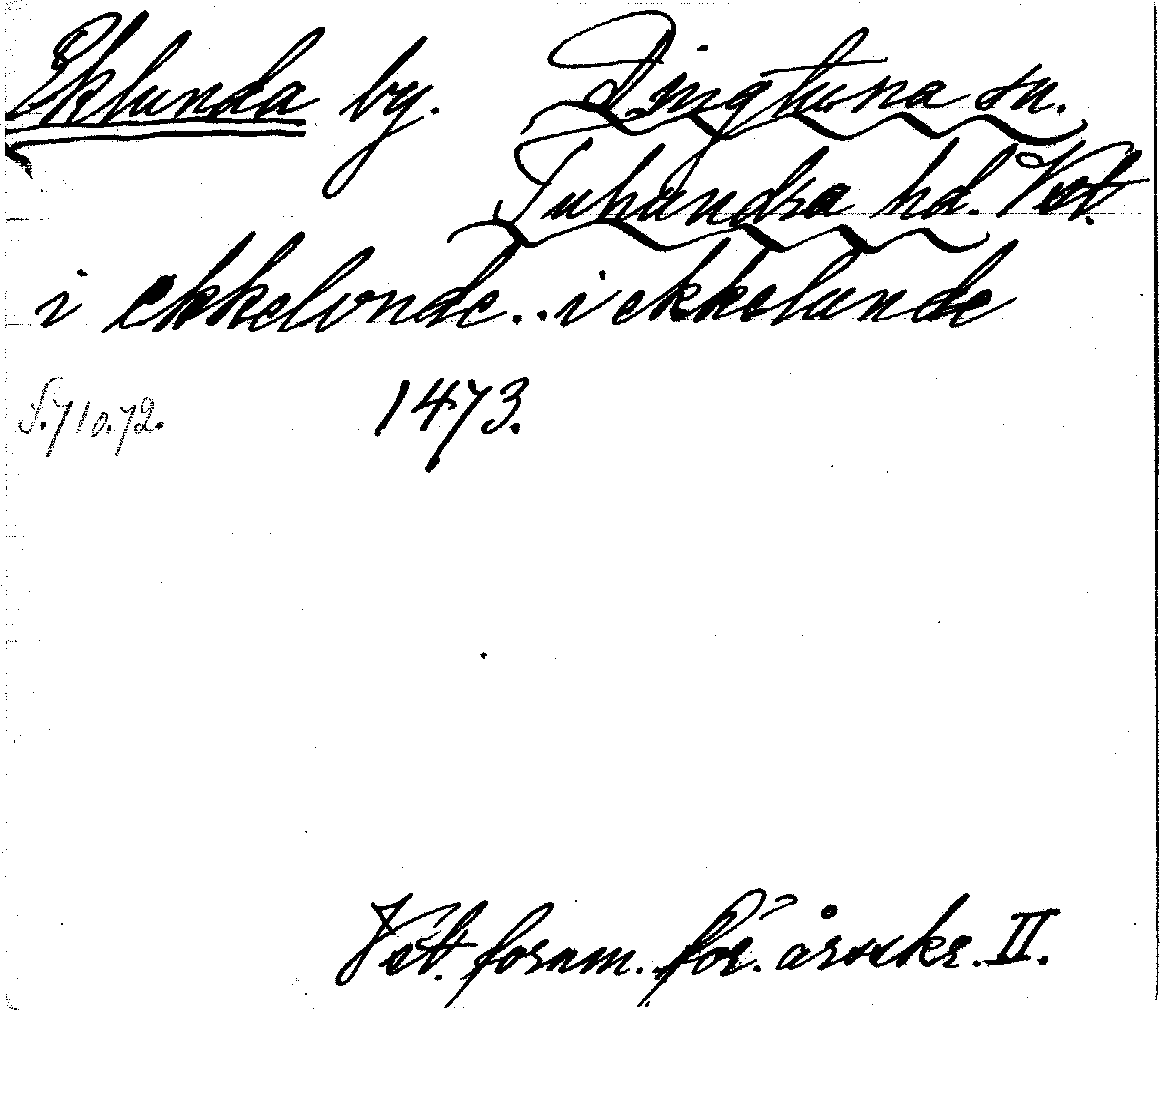 Eklunda by. Dingtuna sn.
Tuhundra hd. Vstl.
i ekkelvnde..i ekkelunde
S.71 o.72. 1473.
Vstl. fornm. för. årsskr. II.